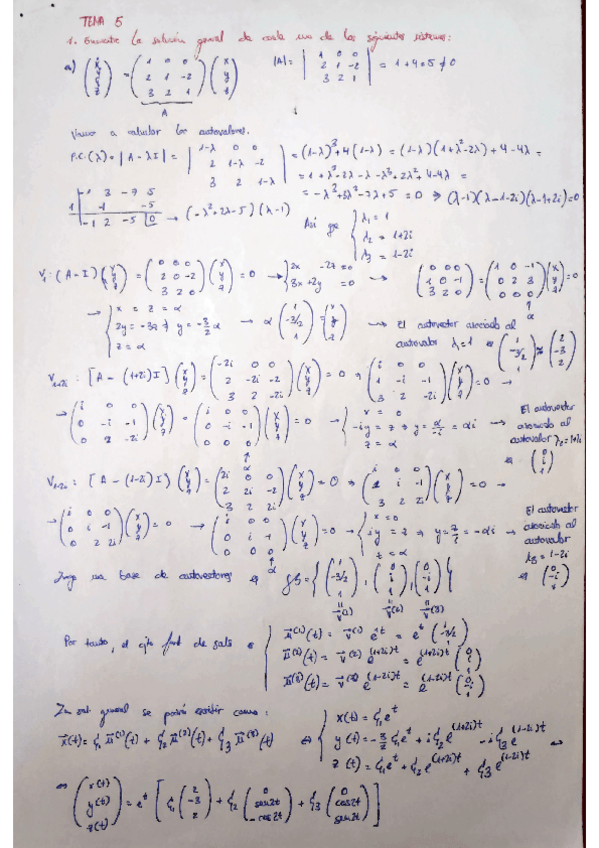 TEMA 5
1. Encuentre la solución general de cada uno de los siguientes sistemas:
a) (ẋ ẏ ż) = (1 0 0 / 2 1 -2 / 3 2 1) (x y z)   |A| = |1 0 0 / 2 1 -2 / 3 2 1| = 1+4=5≠0
A
Vamos a calcular los autovalores.
P.C.(λ) = |A-λI| = |1-λ 0 0 / 2 1-λ -2 / 3 2 1-λ| = (1-λ)³+4(1-λ) = (1-λ)(1+λ²-2λ)+4-4λ =
= 1+λ²-2λ-λ-λ³+2λ²+4-4λ =
= -λ³+3λ²-7λ+5 = 0 ⇒ (λ-1)(λ-1-2i)(λ-1+2i)=0
-1 3 -7 5
1 | -1 -5
-1 2 -5 |0 → (-λ²+2λ-5)(λ-1)
Así que { λ₁ = 1
λ₂ = 1+2i
λ₃ = 1-2i
V₁: (A-I)(x y z) = (0 0 0 / 2 0 -2 / 3 2 0)(x y z) = 0 → { 2x -2z = 0 / 3x+2y = 0 → (0 0 0 / 1 0 -1 / 3 2 0) = (1 0 -1 / 0 2 3 / 0 0 0)(x y z) = 0
α
→ { x = z = α
2y = -3z ⇒ y = -3/2 α
z = α
→ α (1 -3/2 1) = (x y z) → El autovector asociado al
autovalor λ=1 es (1 -3/2 1) ≈ (2 -3 2)
V₁₊₂ᵢ: [A-(1+2i)I](x y z) = (-2i 0 0 / 2 -2i -2 / 3 2 -2i)(x y z) = 0 ⇒ (i 0 0 / 1 -i -1 / 3 2 -2i)(x y z) = 0 →
→ (i 0 0 / 0 -i -1 / 0 2 -2i)(x y z) = (i 0 0 / 0 -i -1 / 0 0 0)(x y z) = 0 → { x = 0 / -iy = z ⇒ y = α/-i = αi / z = α
α
El autovector
asociado al
autovalor λ₂=1+2i
es (0 i 1)
V₁₋₂ᵢ: [A-(1-2i)I](x y z) = (2i 0 0 / 2 2i -2 / 3 2 2i)(x y z) = 0 ⇒ (i 0 0 / 1 i -1 / 3 2 2i)(x y z) = 0 →
→ (i 0 0 / 0 i -1 / 0 2 2i)(x y z) = 0 → (i 0 0 / 0 i 1 / 0 0 0)(x y z) = 0 → { x = 0 / iy = z ⇒ y = z/i = -αi / z = α
α
El autovector
asociado al
autovalor
λ₃ = 1-2i
es (0 -i 1)
una base de autovectores es B = { (1 -3/2 1), (0 i 1), (0 -i 1) }
v(1) v(2) v(3)
Por tanto, el cjto fund de sols es { x⁽¹⁾(t) = v⁽¹⁾ eᵗ = eᵗ (1 -3/2 1)
x⁽²⁾(t) = v⁽²⁾ e⁽¹⁺²ⁱ⁾ᵗ = e⁽¹⁺²ⁱ⁾ᵗ (0 i 1)
x⁽³⁾(t) = v⁽³⁾ e⁽¹⁻²ⁱ⁾ᵗ = e⁽¹⁻²ⁱ⁾ᵗ (0 -i 1)
sol general se podrá escribir como:
x(t) = C₁ x⁽¹⁾(t) + C₂ x⁽²⁾(t) + C₃ x⁽³⁾(t) ⇔ { x(t) = C₁eᵗ
y(t) = -3/2 C₁eᵗ + iC₂e⁽¹⁺²ⁱ⁾ᵗ - iC₃e⁽¹⁻²ⁱ⁾ᵗ ⇔
z(t) = C₁eᵗ + C₂e⁽¹⁺²ⁱ⁾ᵗ + C₃e⁽¹⁻²ⁱ⁾ᵗ
⇔ (x(t) y(t) z(t)) = eᵗ [ C₁ (2 -3 2) + C₂ (0 sen2t -cos2t) + C₃ (0 cos2t sen2t) ]